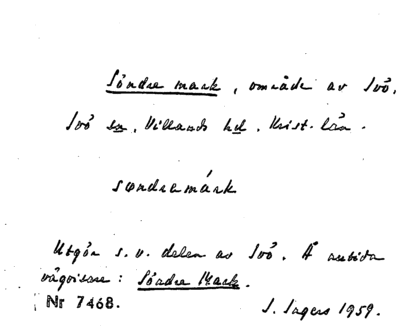 Söndre mark, område av Ivö,
Ivö sn, Villands hd. Krist. län.
sœndramárk
Utgör s.v. delen av Ivö. Å antida
vägvisare: Södre Mark.
Nr 7468.
I. Ingers 1959.